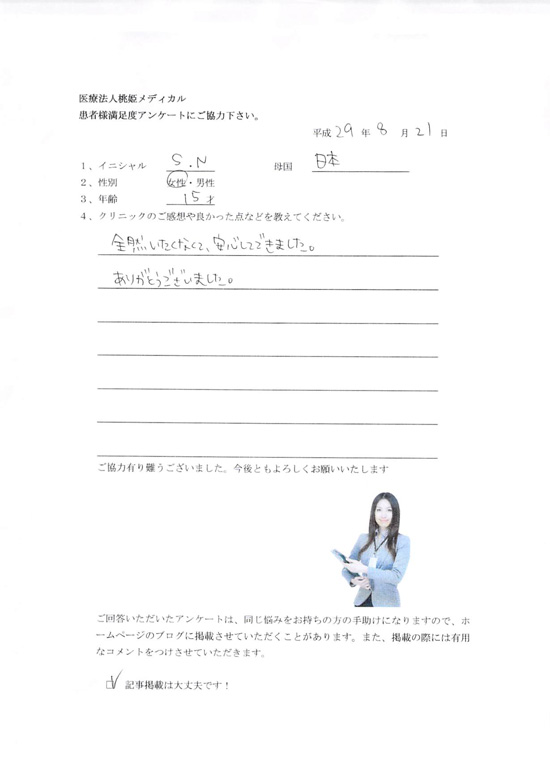 医療法人桃姫メディカル
患者様満足度アンケートにご協力下さい。
平成 29 年 8 月 21 日
1、イニシャル S.N 母国 日本
2、性別 女性・男性
3、年齢 15才
4、クリニックのご感想や良かった点などを教えてください。
全然いたくなくて、安心してできました。
ありがとうございました。
ご協力有り難うございました。今後ともよろしくお願いいたします
ご回答いただいたアンケートは、同じ悩みをお持ちの方の手助けになりますので、ホ
ームページのブログに掲載させていただくことがあります。また、掲載の際には有用
なコメントをつけさせていただきます。
記事掲載は大丈夫です！